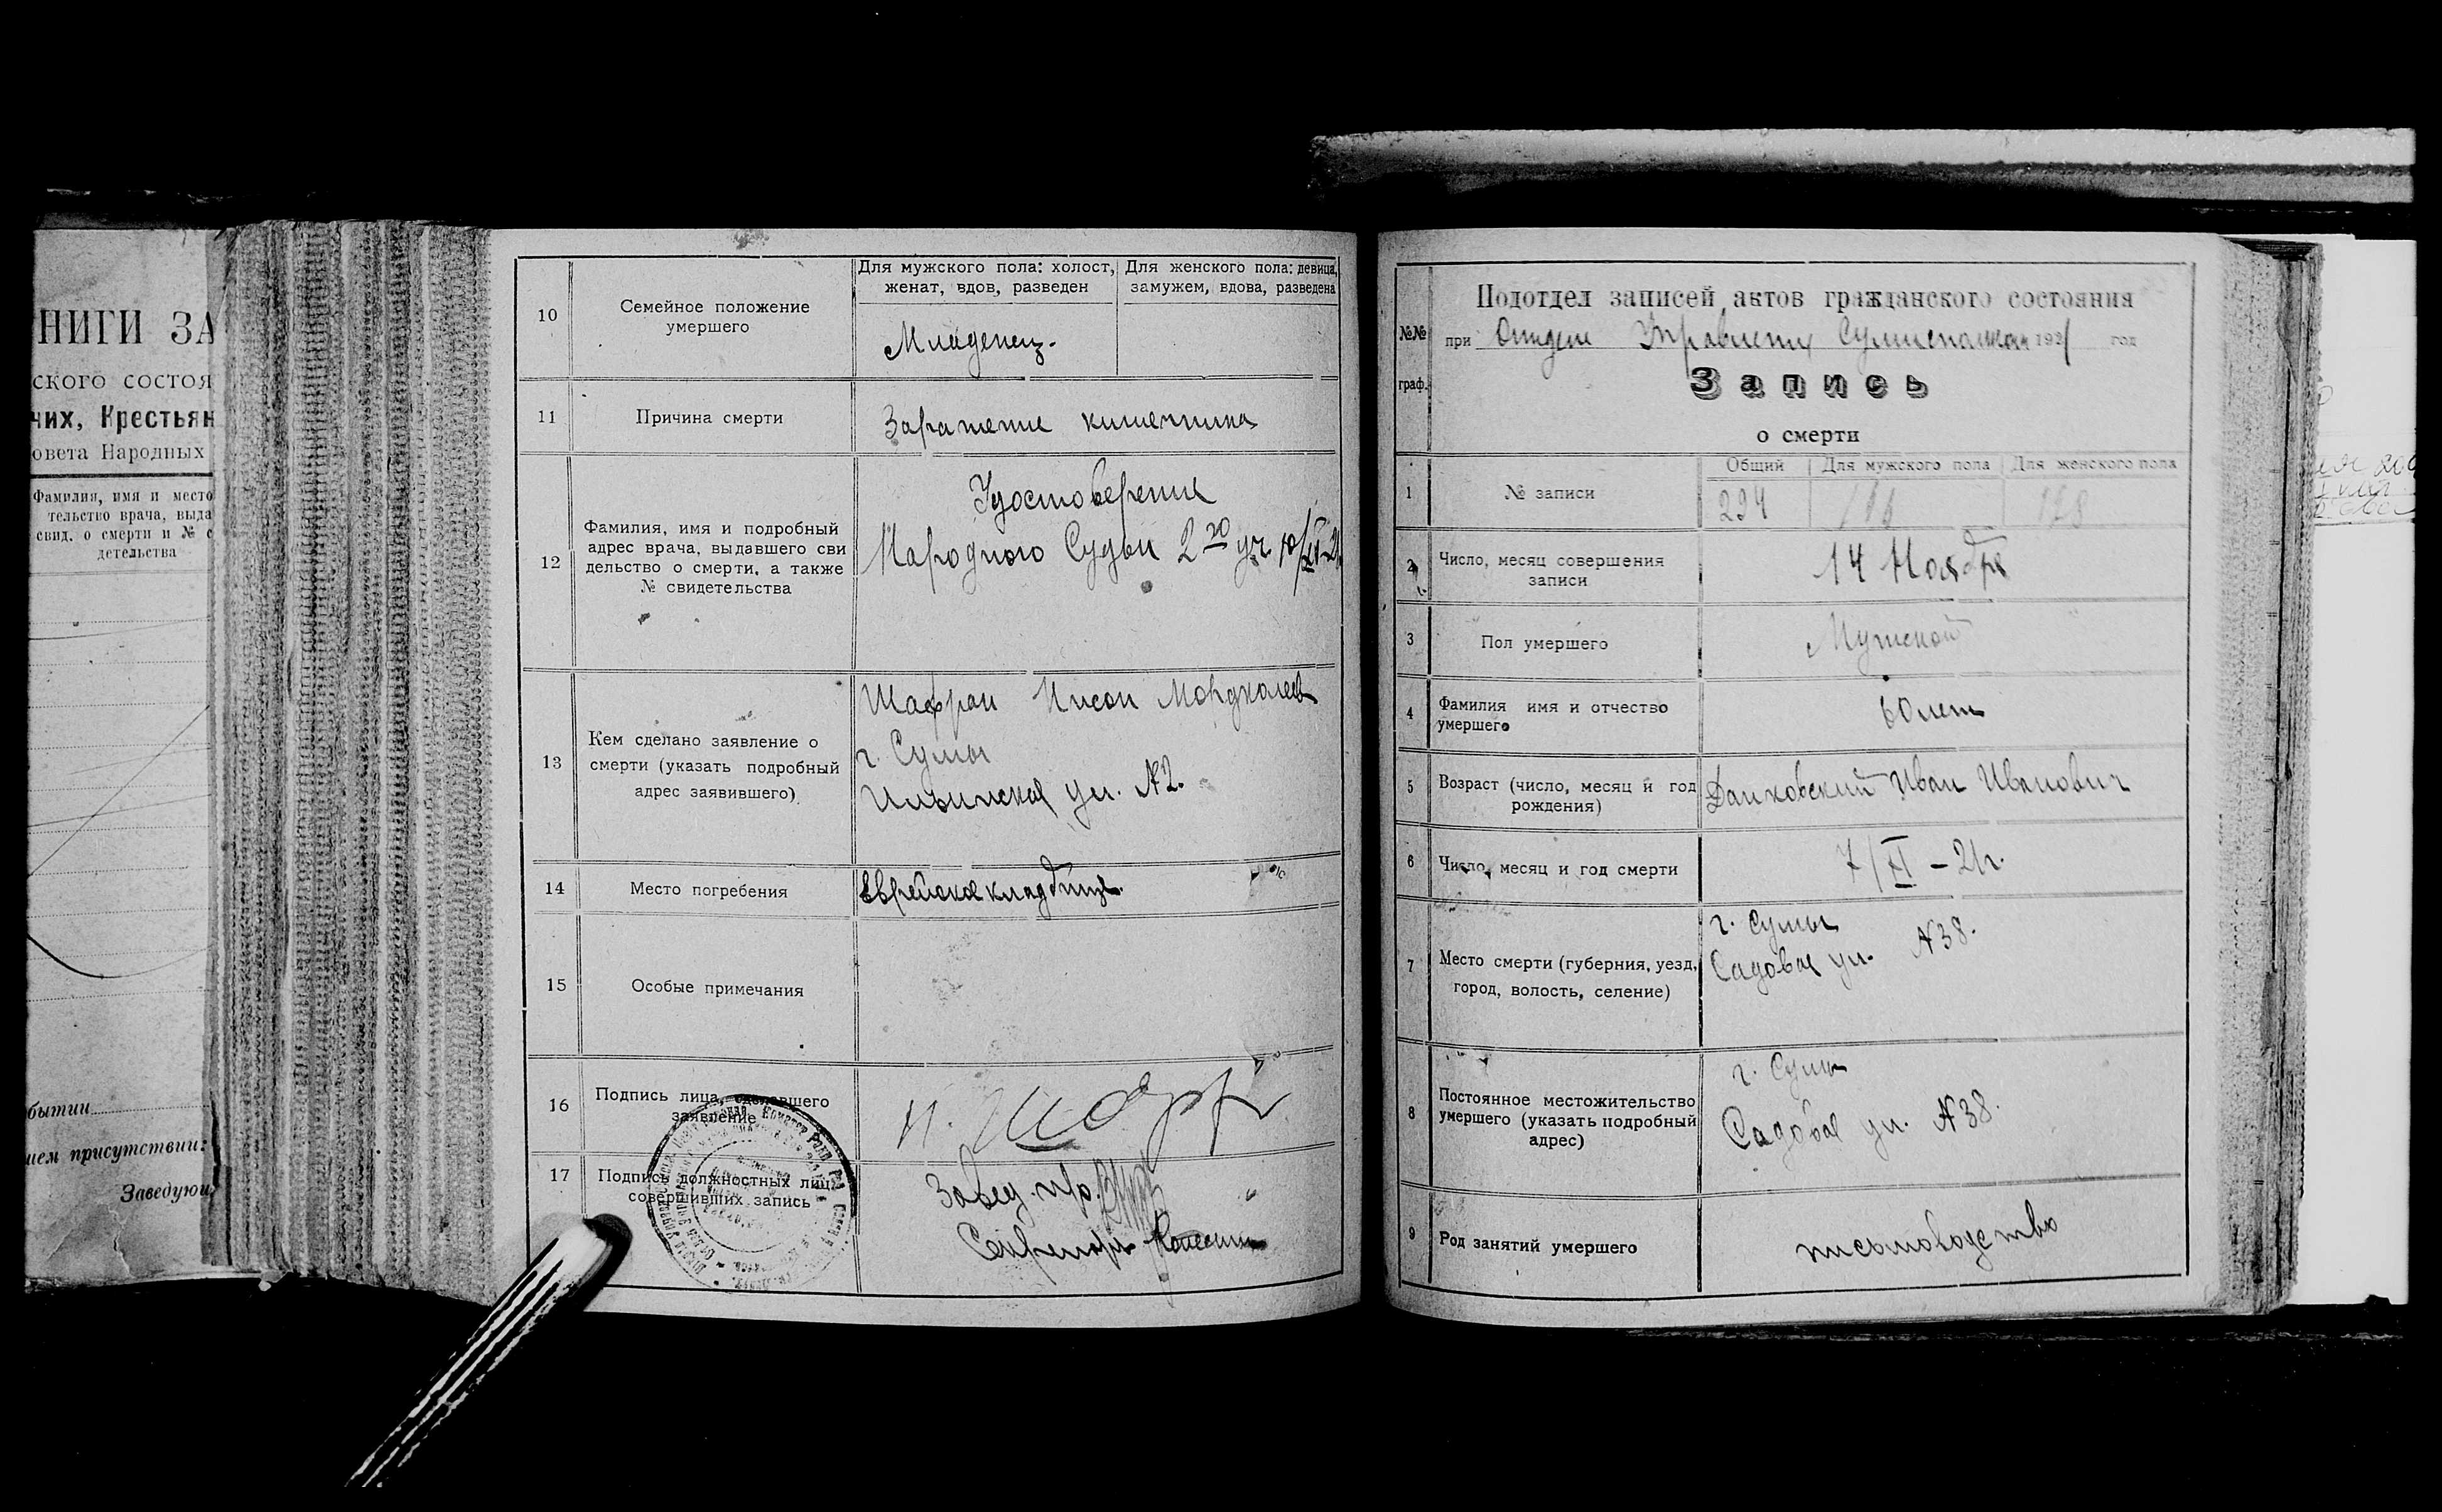 НИГИ ЗА
ского состоя
чих, Крестьян
овета Народных
Фамилия, имя и место
тельство врача, выда
свид. о смерти и № с
детельства
бытии
ием присутствии:
Заведую
10
Семейное положение
умершего
Для мужского пола: холост,
женат, вдов, разведен
Для женского пола: девица,
замужем, вдова, разведена
Младенец.
11
Причина смерти
Заражение кишечника
12
Фамилия, имя и подробный
адрес врача, выдавшего сви
дельство о смерти, а также
№ свидетельства
Удостоверение
Народного Судьи 2го уч. 10/XI-21
13
Кем сделано заявление о
смерти (указать подробный
адрес заявившего)
Шафран Нисон Мордкалев
г. Сумы
Ильинская ул. №2.
14
Место погребения
Еврейское кладбище.
15
Особые примечания
16
Подпись лица, сделавшего
заявление
Н. Шафр
17
Подпись должностных лиц,
совершивших запись
Завед. п/о.
Секретарь
№№
граф.
Подотдел записей актов гражданского состояния
при Отделе Управления Сумисполкома 1921 год
Запись
о смерти
1
№ записи
Общий
Для мужского пола
Для женского пола
294
166
128
2
Число, месяц совершения
записи
14 Ноября
3
Пол умершего
Мужской
4
Фамилия имя и отчество
умершего
60 лет
5
Возраст (число, месяц и год
рождения)
Данковский Иван Иванович
6
Число, месяц и год смерти
7/XI - 21г.
7
Место смерти (губерния, уезд,
город, волость, селение)
г. Сумы
Садовая ул. №38.
8
Постоянное местожительство
умершего (указать подробный
адрес)
г. Сумы
Садовая ул. №38.
9
Род занятий умершего
письмоводство